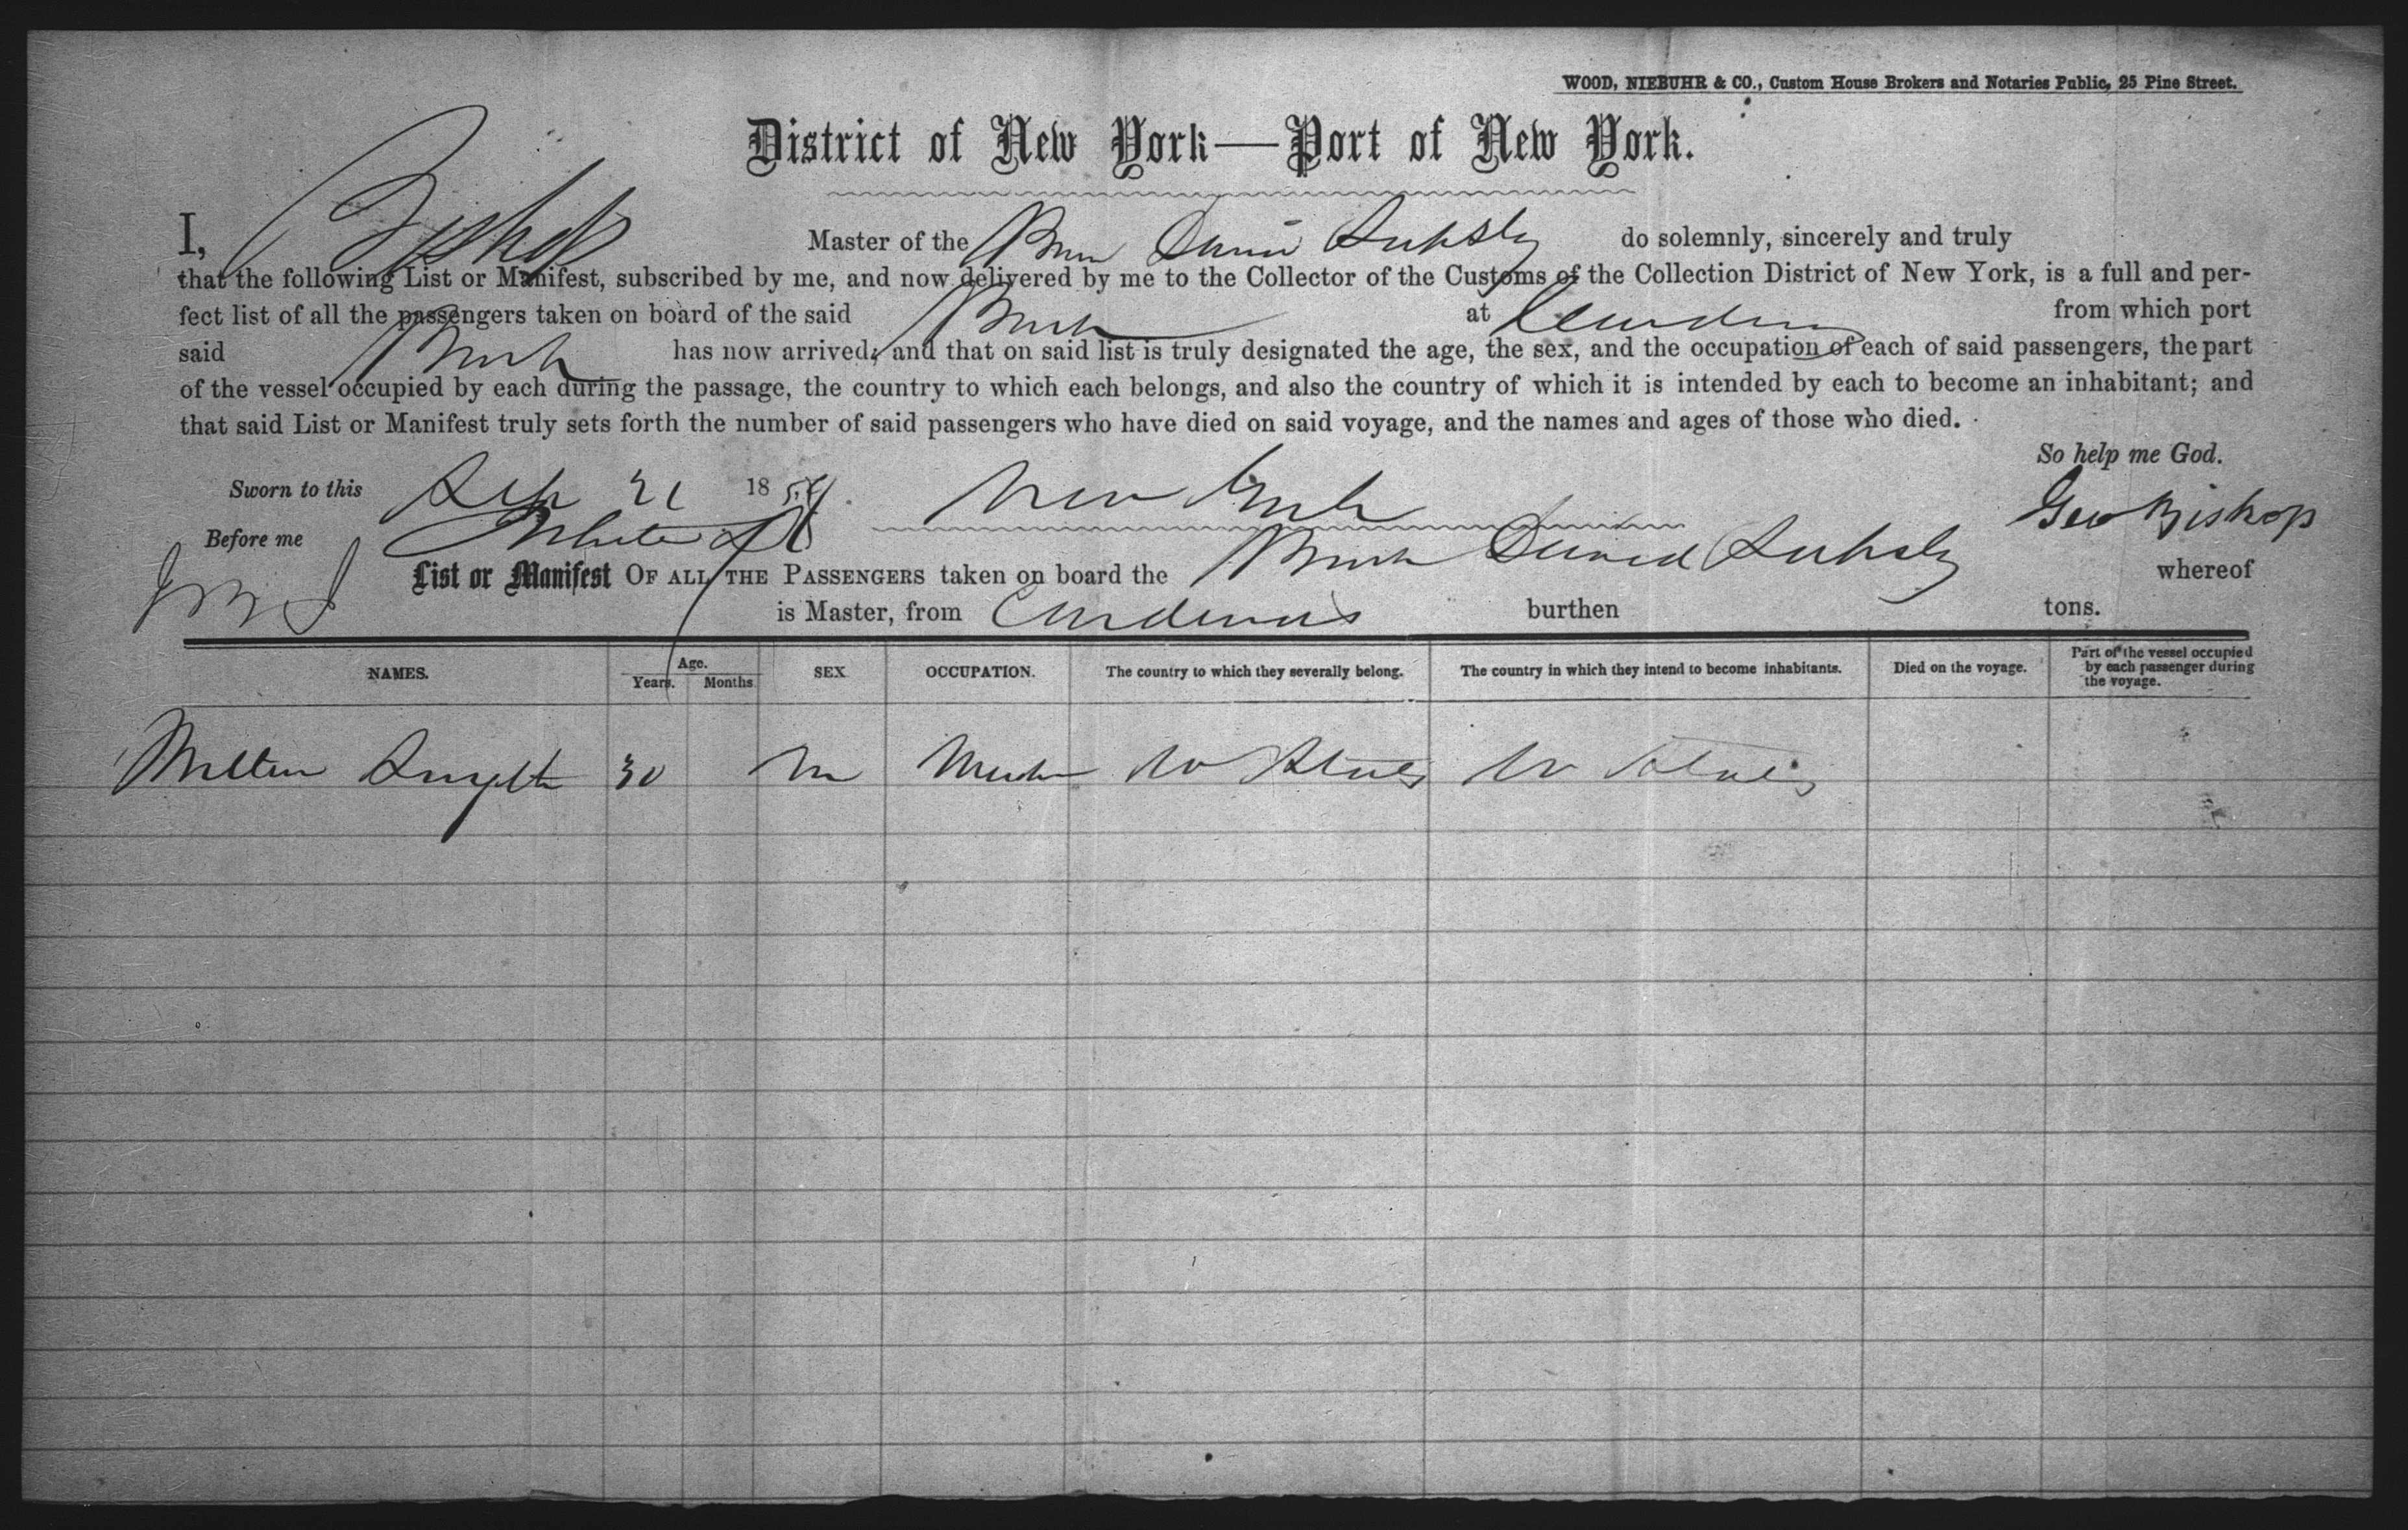 WOOD, NIEBUHR & CO., Custom House Brokers and Notaries Public, 25 Pine Street.
District of New York—Port of New York.
I, Bishop Master of the do solemnly, sincerely and truly
that the following List or Manifest, subscribed by me, and now delivered by me to the Collector of the Customs of the Collection District of New York, is a full and per-
fect list of all the passengers taken on board of the said Bark at from which port
said Bark has now arrived; and that on said list is truly designated the age, the sex, and the occupation of each of said passengers, the part
of the vessel occupied by each during the passage, the country to which each belongs, and also the country of which it is intended by each to become an inhabitant; and
that said List or Manifest truly sets forth the number of said passengers who have died on said voyage, and the names and ages of those who died.
So help me God.
Sworn to this Sep 21 18 New York
Geo Bishop
Before me
List or Manifest OF ALL THE PASSENGERS taken on board the Bark David whereof
is Master, from Cardenas burthen tons.
NAMES. Age. Years. Months SEX OCCUPATION. The country to which they severally belong. The country in which they intend to become inhabitants. Died on the voyage. Part of the vessel occupied by each passenger during the voyage.
30 M U States U States